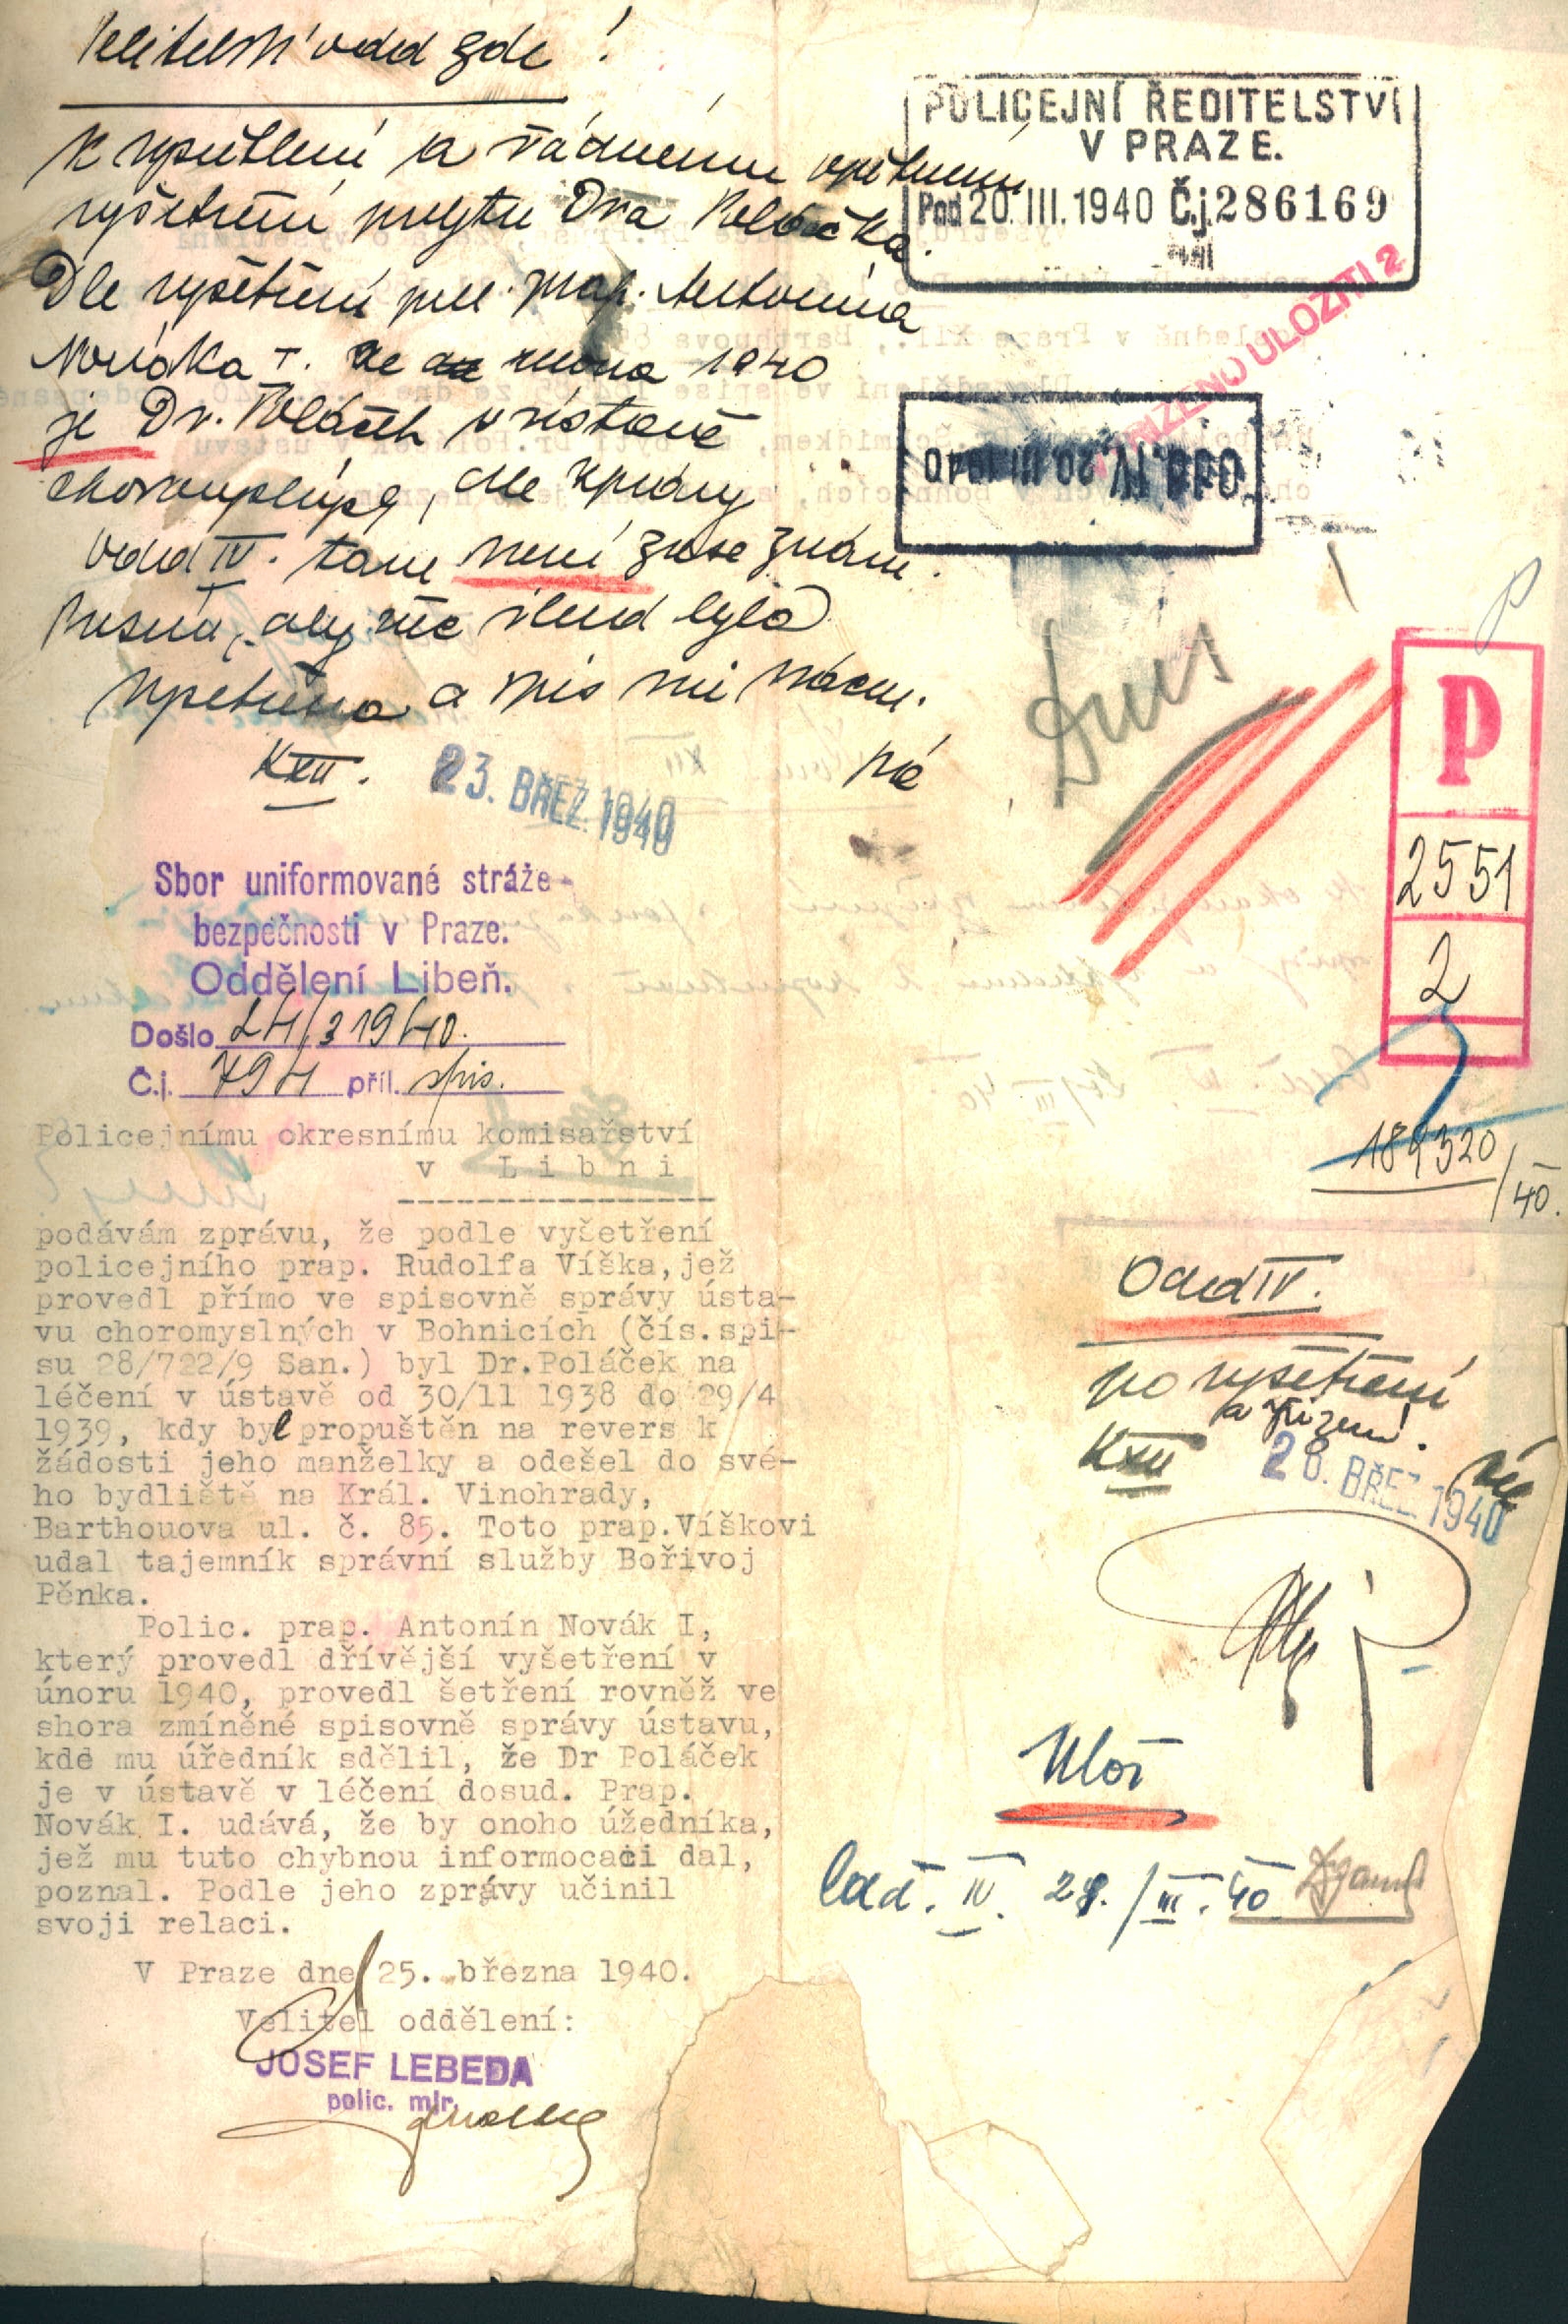 Velitelství odd zde!
a řádnému
vyšetření pobytu Dra Poláčka.
Dle vyšetření pol. prap. Antonína
Nováka I. ze února 1940
je Dr. Poláček v ústavě
choromyslných, dle zprávy
odd IV. tam není zase znám.
Nutno, aby věc ihned byla
vyšetřena a spis mi vrácen.
KXII.
23. BŘEZ. 1940
POLICEJNÍ ŘEDITELSTVÍ
V PRAZE.
Pod 20. III. 1940 Č.j. 286169
ULOŽITI 2
Odd. IV. 20. III 1940
P
2551
2
189320
/40.
Sbor uniformované stráže
bezpečnosti v Praze.
Oddělení Libeň.
Došlo 24/3 1940.
Č.j. 794 příl. spis.
Policejnímu okresnímu komisařství
v Libni
podávám zprávu, že podle vyšetření
policejního prap. Rudolfa Víška, jež
provedl přímo ve spisovně správy ústa-
vu choromyslných v Bohnicích (čís.spi-
su 28/722/9 San.) byl Dr.Poláček na
léčení v ústavě od 30/11 1938 do 29/4
1939, kdy byl propuštěn na revers k
žádosti jeho manželky a odešel do své-
ho bydliště na Král. Vinohrady,
Barthouova ul. č. 85. Toto prap.Víškovi
udal tajemník správní služby Bořivoj
Pěnka.
Polic. prap. Antonín Novák I,
který provedl dřívější vyšetření v
únoru 1940, provedl šetření rovněž ve
shora zmíněné spisovně správy ústavu,
kde mu úředník sdělil, že Dr Poláček
je v ústavě v léčení dosud. Prap.
Novák I. udává, že by onoho úžedníka,
jež mu tuto chybnou informocaci dal,
poznal. Podle jeho zprávy učinil
svoji relaci.
V Praze dne 25. března 1940.
Velitel oddělení:
JOSEF LEBEDA
polic. mjr.
Odd IV.
po vyšetření
a řízení.
KXII
28. BŘEZ 1940
Ulož
odd. IV. 28./III. 40